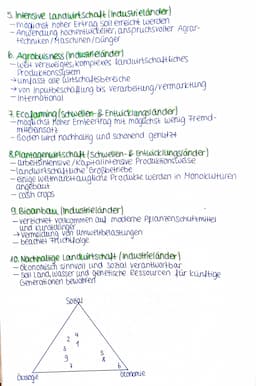 5. Intensive Landwirtschaft (Industrieländer)
- möglichst hoher Ertrag soll erreicht werden
- Anwendung hochentwickelter, anspruchsvoller Agrar-
techniken/Maschinen/Dünger
6. Agrobusiness (Industrieländer)
- weit verzweigtes, komplexes landwirtschaftliches
Produktionssystem
→ umfasst alle Wirtschaftsbereiche
→ von Inputbeschaffung bis Verarbeitung/Vermarktung
- international
7. Ecofarming (Schwellen- & Entwicklungsländer)
- möglichst hoher Ernteertrag mit möglichst wenig Fremd-
mitteleinsatz
- Boden wird nachhaltig und schonend genutzt
8. Plantagenwirtschaft (Schwellen- & Entwicklungsländer)
- arbeitsintensive/kapitalintensive Produktionsweise
- landwirtschaftliche Großbetriebe
- einige weltmarkttaugliche Produkte werden in Monokulturen
angebaut
- cash crops
9. Bioanbau (Industrieländer)
- verzichtet vollkommen auf moderne Pflanzenschutzmittel
und Kunstdünger
→ Vermeidung von Umweltbelastungen
- beachtet Fruchtfolge
10. Nachhaltige Landwirtschaft (Industrieländer)
- ökonomisch sinnvoll und sozial verantwortbar
- soll Land, Wasser und genetische Ressourcen für künftige
Generationen bewahren
Sozial
2 4
1
3
9
5
8
7
6
Ökologie
Ökonomie